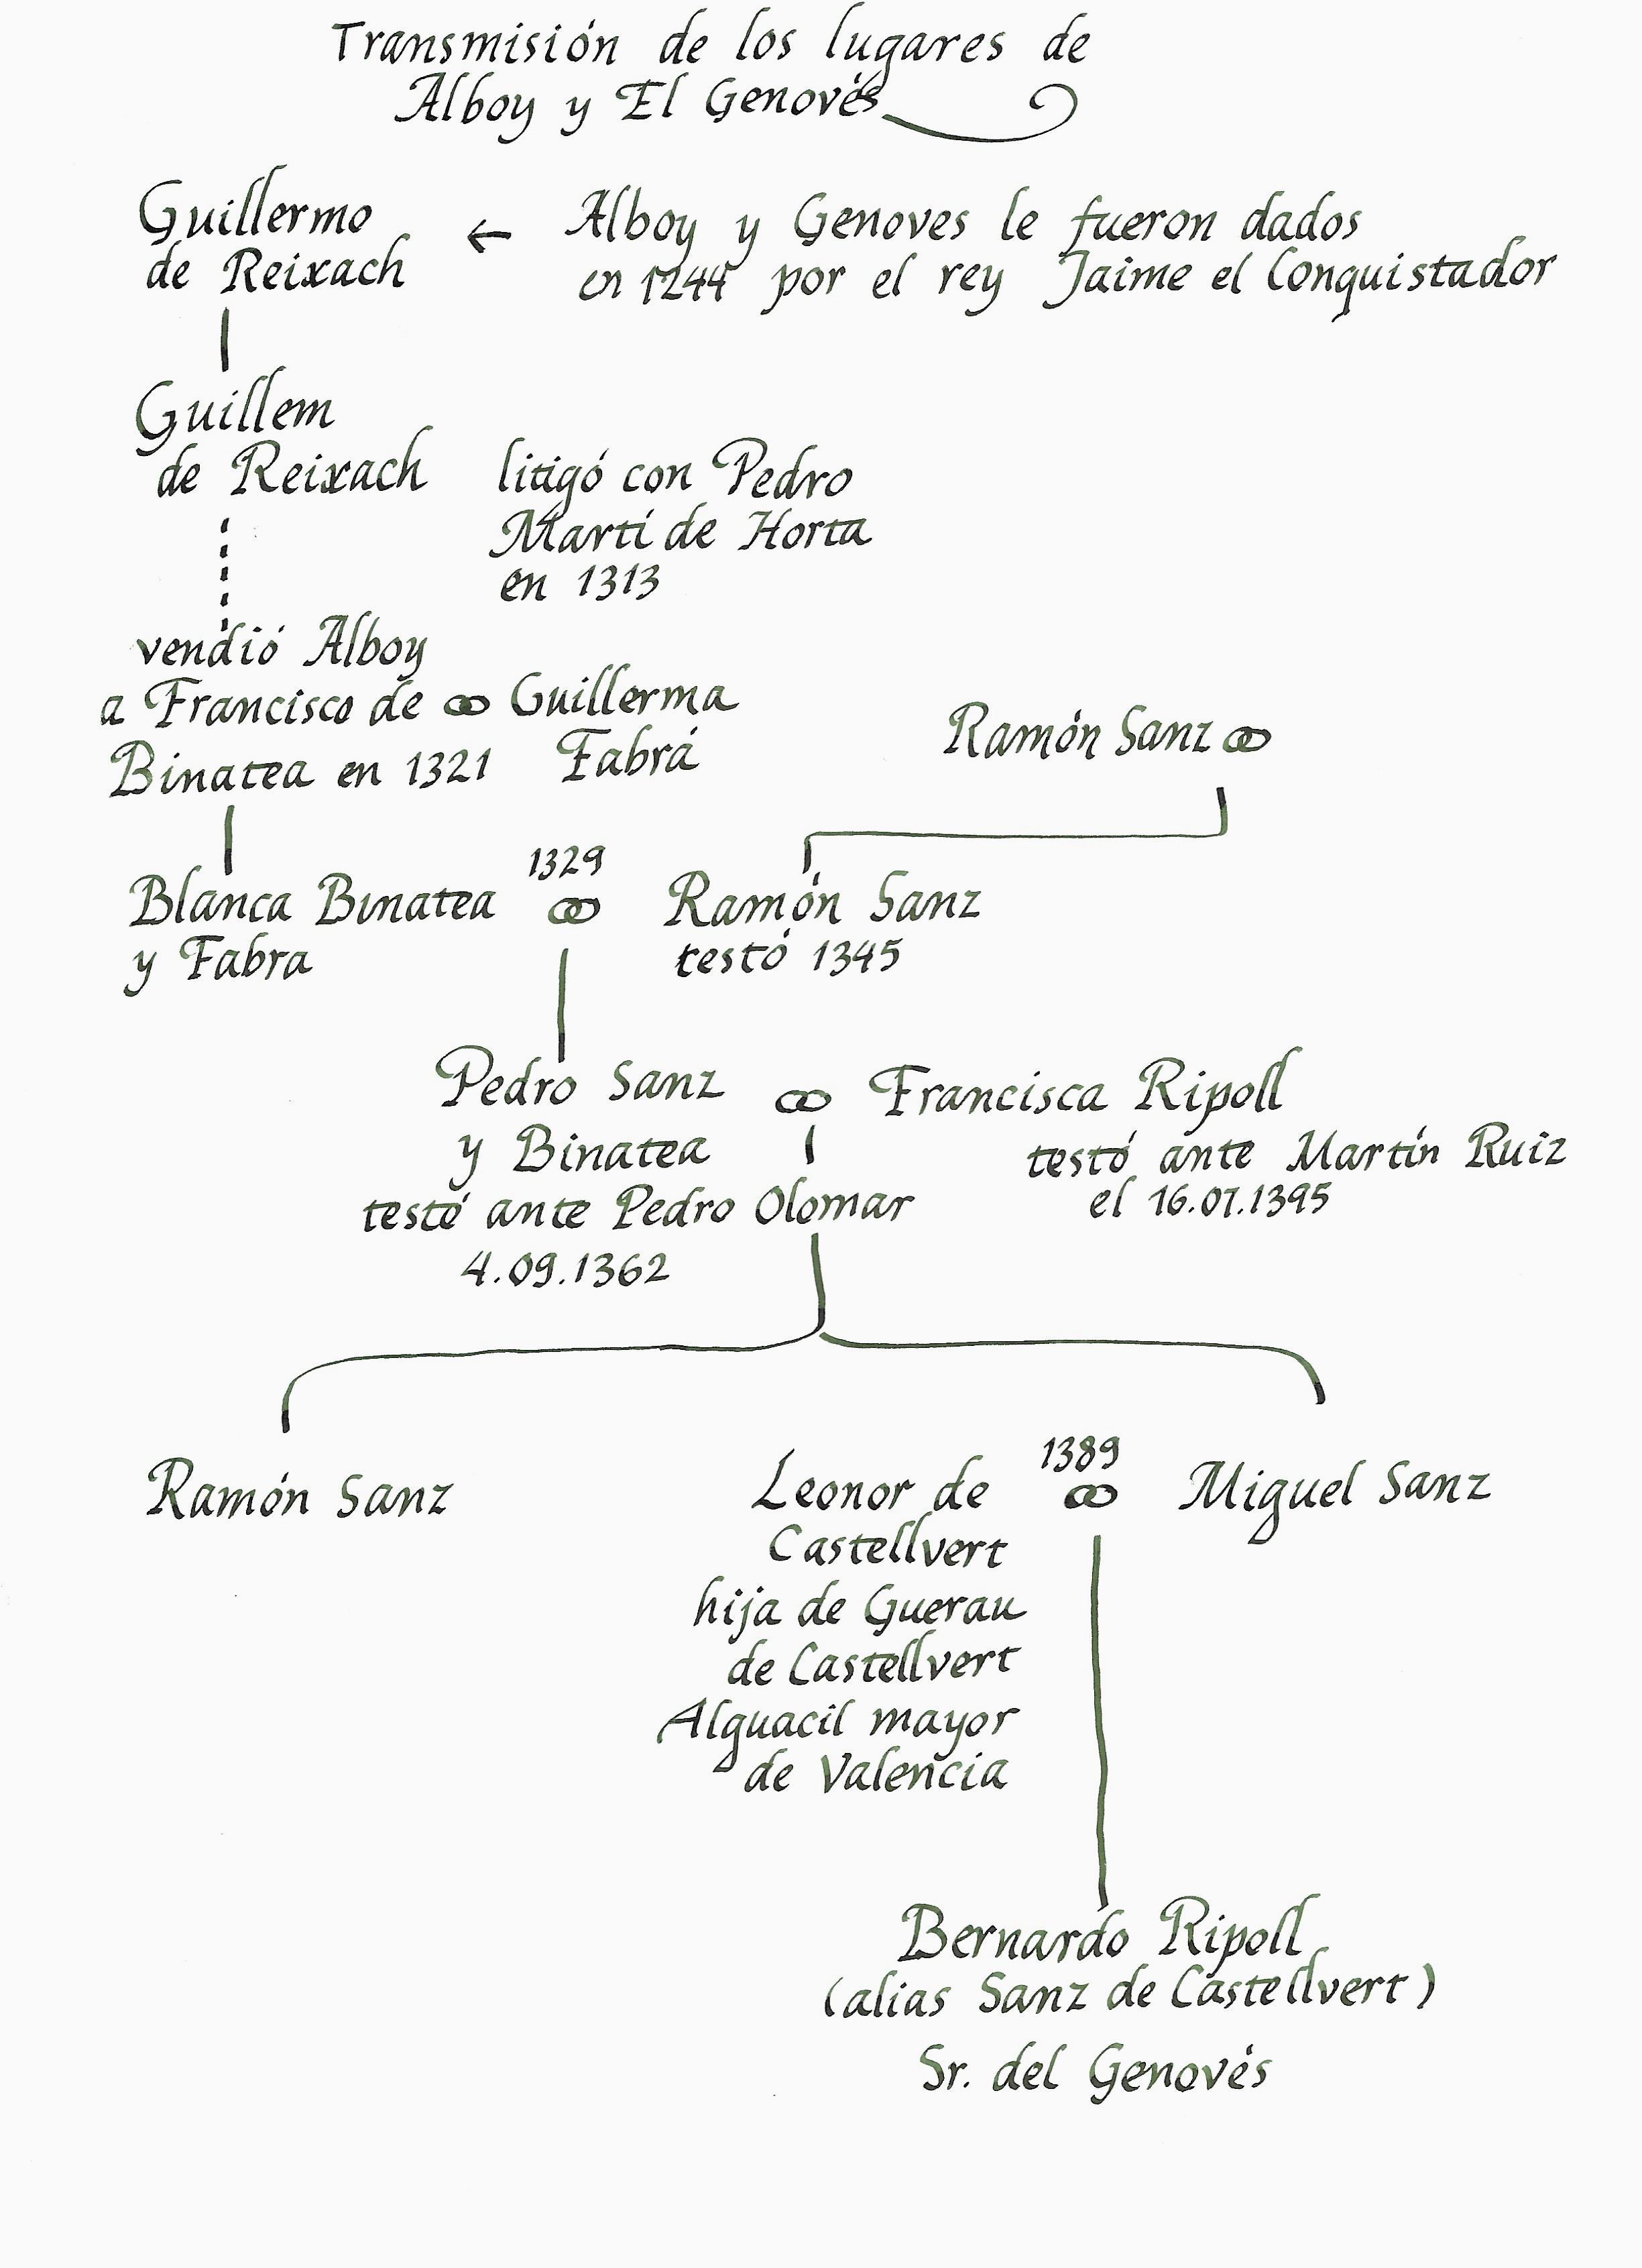 Transmisión de los lugares de
Alboy y El Genovés
Guillermo
de Reixach
← Alboy y Genoves le fueron dados
en 1244 por el rey Jaime el Conquistador
Guillem
de Reixach
litigó con Pedro
Martí de Horta
en 1313
vendió Alboy
a Francisco de ꝏ Guillerma
Binatea en 1321 Fabrá
Ramón Sanz ꝏ
1329
Blanca Binatea ꝏ Ramón Sanz
y Fabra testó 1345
Pedro Sanz ꝏ Francisca Ripoll
y Binatea
testó ante Pedro Olomar
4.09.1362
testó ante Martín Ruiz
el 16.07.1395
Ramón Sanz
1389
Leonor de ꝏ Miguel Sanz
Castellvert
hija de Guerau
de Castellvert
Alguacil mayor
de Valencia
Bernardo Ripoll
(alias Sanz de Castellvert)
Sr. del Genovés